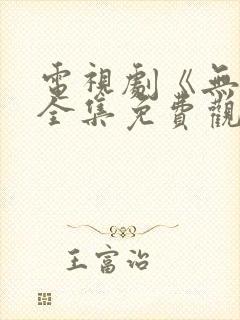 電視劇《無
全集免費觀
王富治